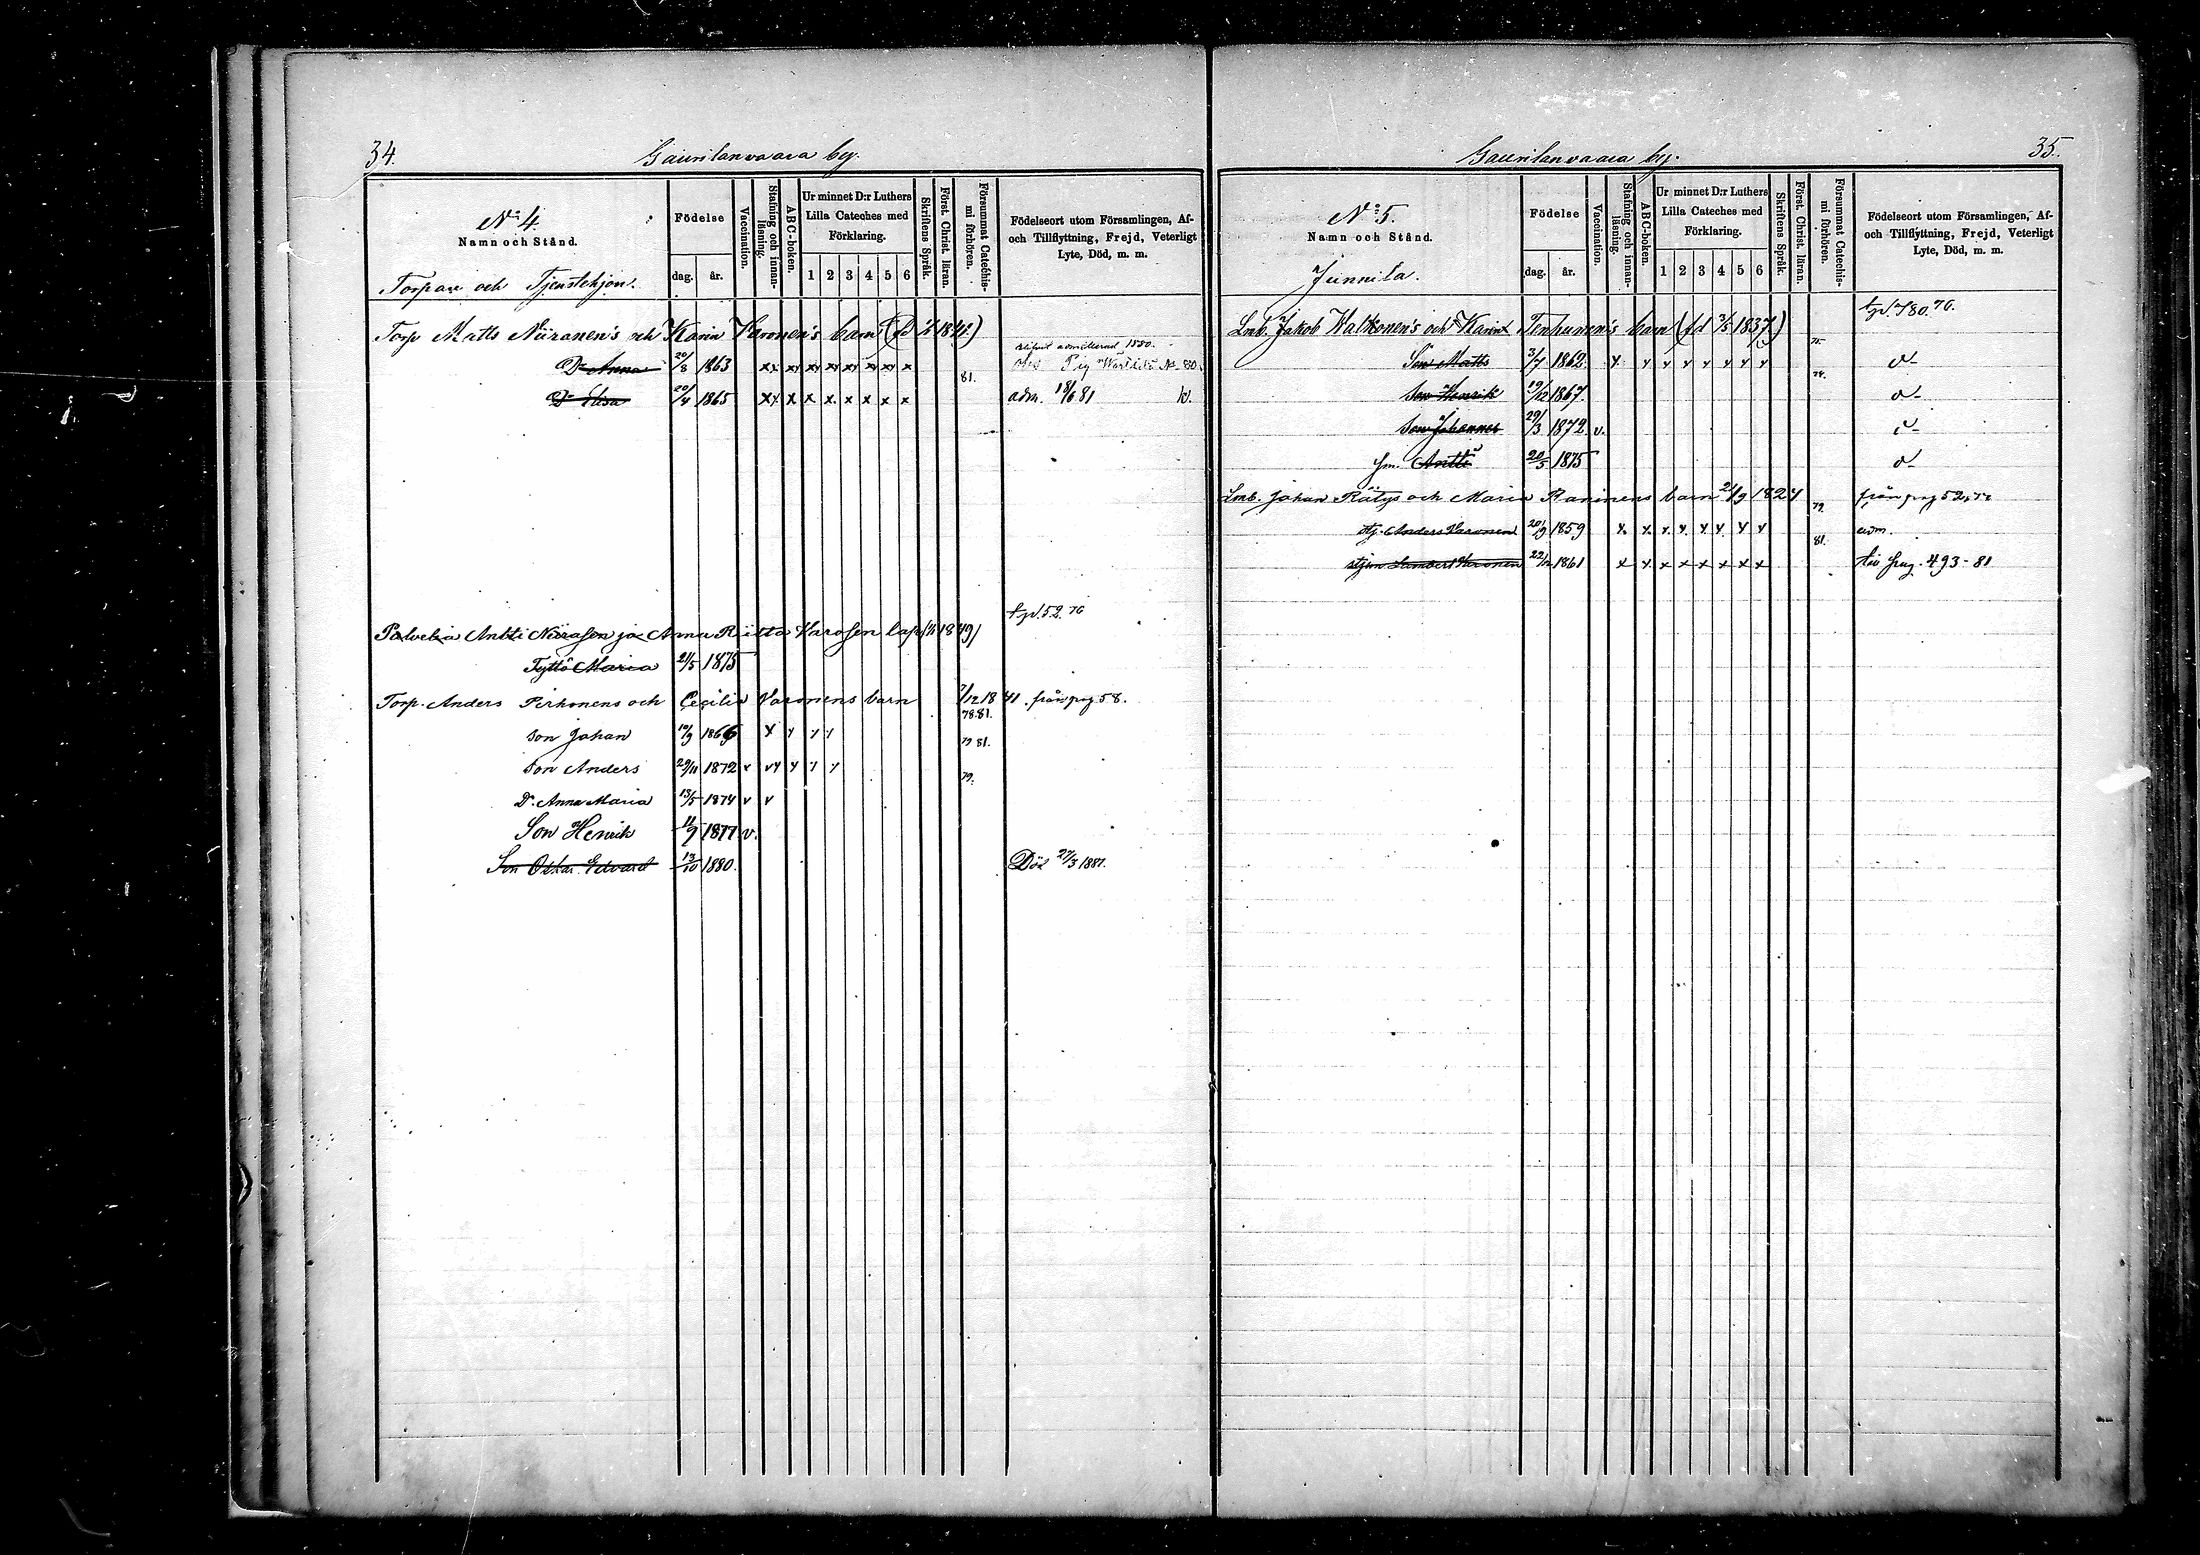 34. Gaurilanvaara by.
No 4.
Namn och Stånd.
Torpare och Tjenstehjon.
Födelse
dag. år.
Vaccination.
Stafning och innan-läsning.
ABC-boken.
Ur minnet D:r Luthers Lilla Cateches med Förklaring.
1 2 3 4 5 6
Skriftens Språk.
Först. Christ. läran.
Försummat Catechis-mi förhören.
Födelseort utom Församlingen, Af- och Tillflyttning, Frejd, Veterligt Lyte, Död, m. m.
Torp Matts Niiranen's och Karin Varonen's barn
D. Anna 20/8 1863 xx xx xx xx xx xx xx x
D. Elisa 20/4 1865 xx x x x x x x x 81. adm. 18/6 81
tgd. 52. 76
Palvelia Antti Niirasen ja Anna Riitta Varosen lap
Tyttö Maria 21/5 1875
Torp. Anders Pirhonens och Cecilia Varonens barn 7/12 18 41. från pag 58.
78.81.
Son Johan 10/9 1866 x y y y 79 81.
Son Anders 29/11 1872 v vy y y y 79.
D. Anna Maria 13/5 1874 v v
Son Henrik 11/7 1877 v.
Son Oskar Edvard 13/10 1880. Död 27/3 1881.
Gaurilanvaara by. 35.
No 5.
Namn och Stånd.
Junnila.
Födelse
dag. år.
Vaccination.
Stafning och innan-läsning.
ABC-boken.
Ur minnet D:r Luthers Lilla Cateches med Förklaring.
1 2 3 4 5 6
Skriftens Språk.
Först. Christ. läran.
Försummat Catechis-mi förhören.
Födelseort utom Församlingen, Af- och Tillflyttning, Frejd, Veterligt Lyte, Död, m. m.
Lmb. Jakob Walkonen's och Karin Tenhunen's barn (fd 3/5 1837.)
Son Matts 3/7 1862. x y y y y y y y
Son Henrik 19/12 1867.
Son Johannes 29/3 1872 v.
Antti 20/5 1875
Lmb. Johan Rätys och Maria Raninens barn 21/9 1824 från pag 52,
Anders Varonen 20/9 1859 x x x x x x x x 79. adm.
Lambert Varonen 22/12 1861 x x x x x x x x 81. till pag. 493-81